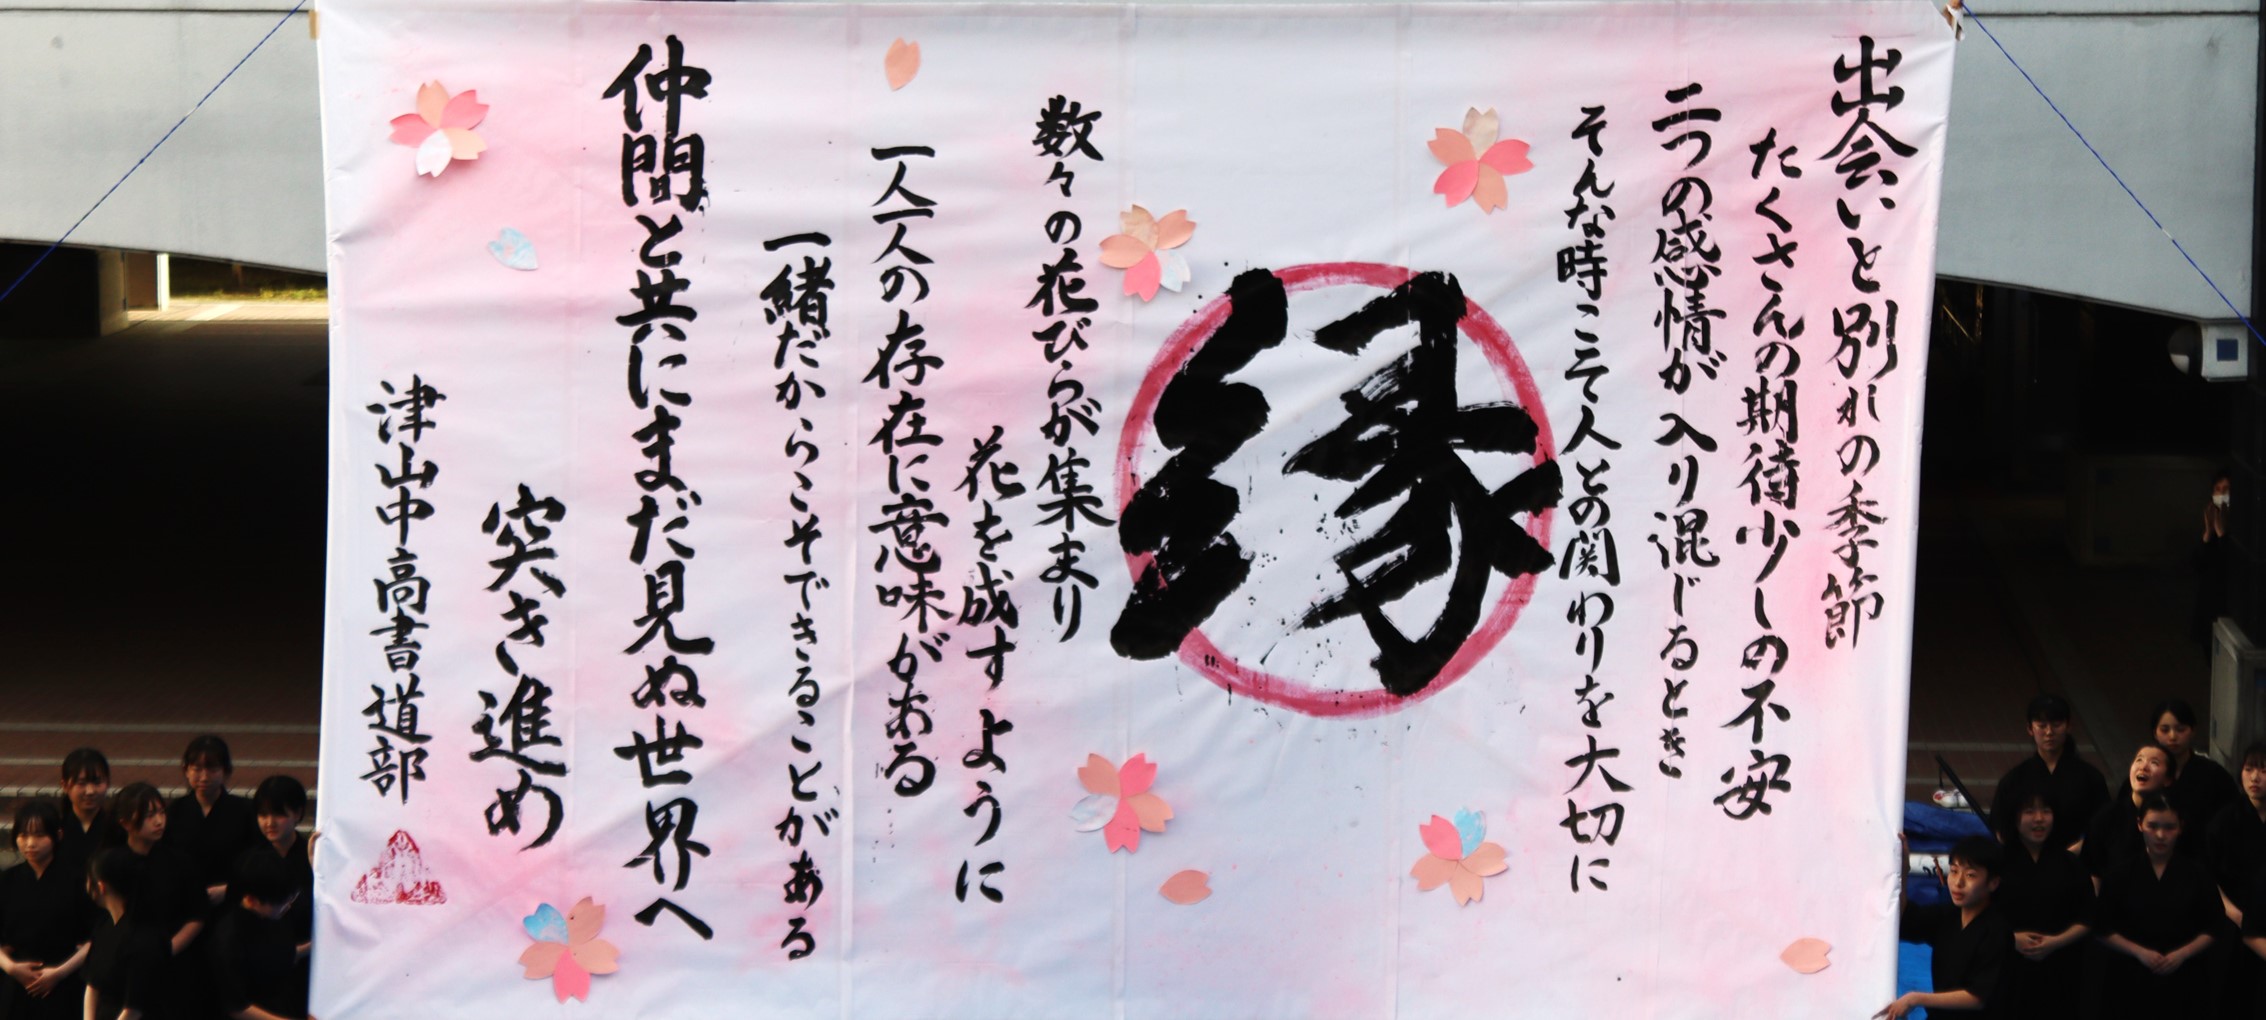 出会いと別れの季節
たくさんの期待少しの不安
二つの感情が入り混じるとき
そんな時こそ人との関わりを大切に
縁
数々の花びらが集まり
花を成すように
一人一人の存在に意味がある
一緒だからこそできることがある
仲間と共にまだ見ぬ世界へ
突き進め
津山中高書道部